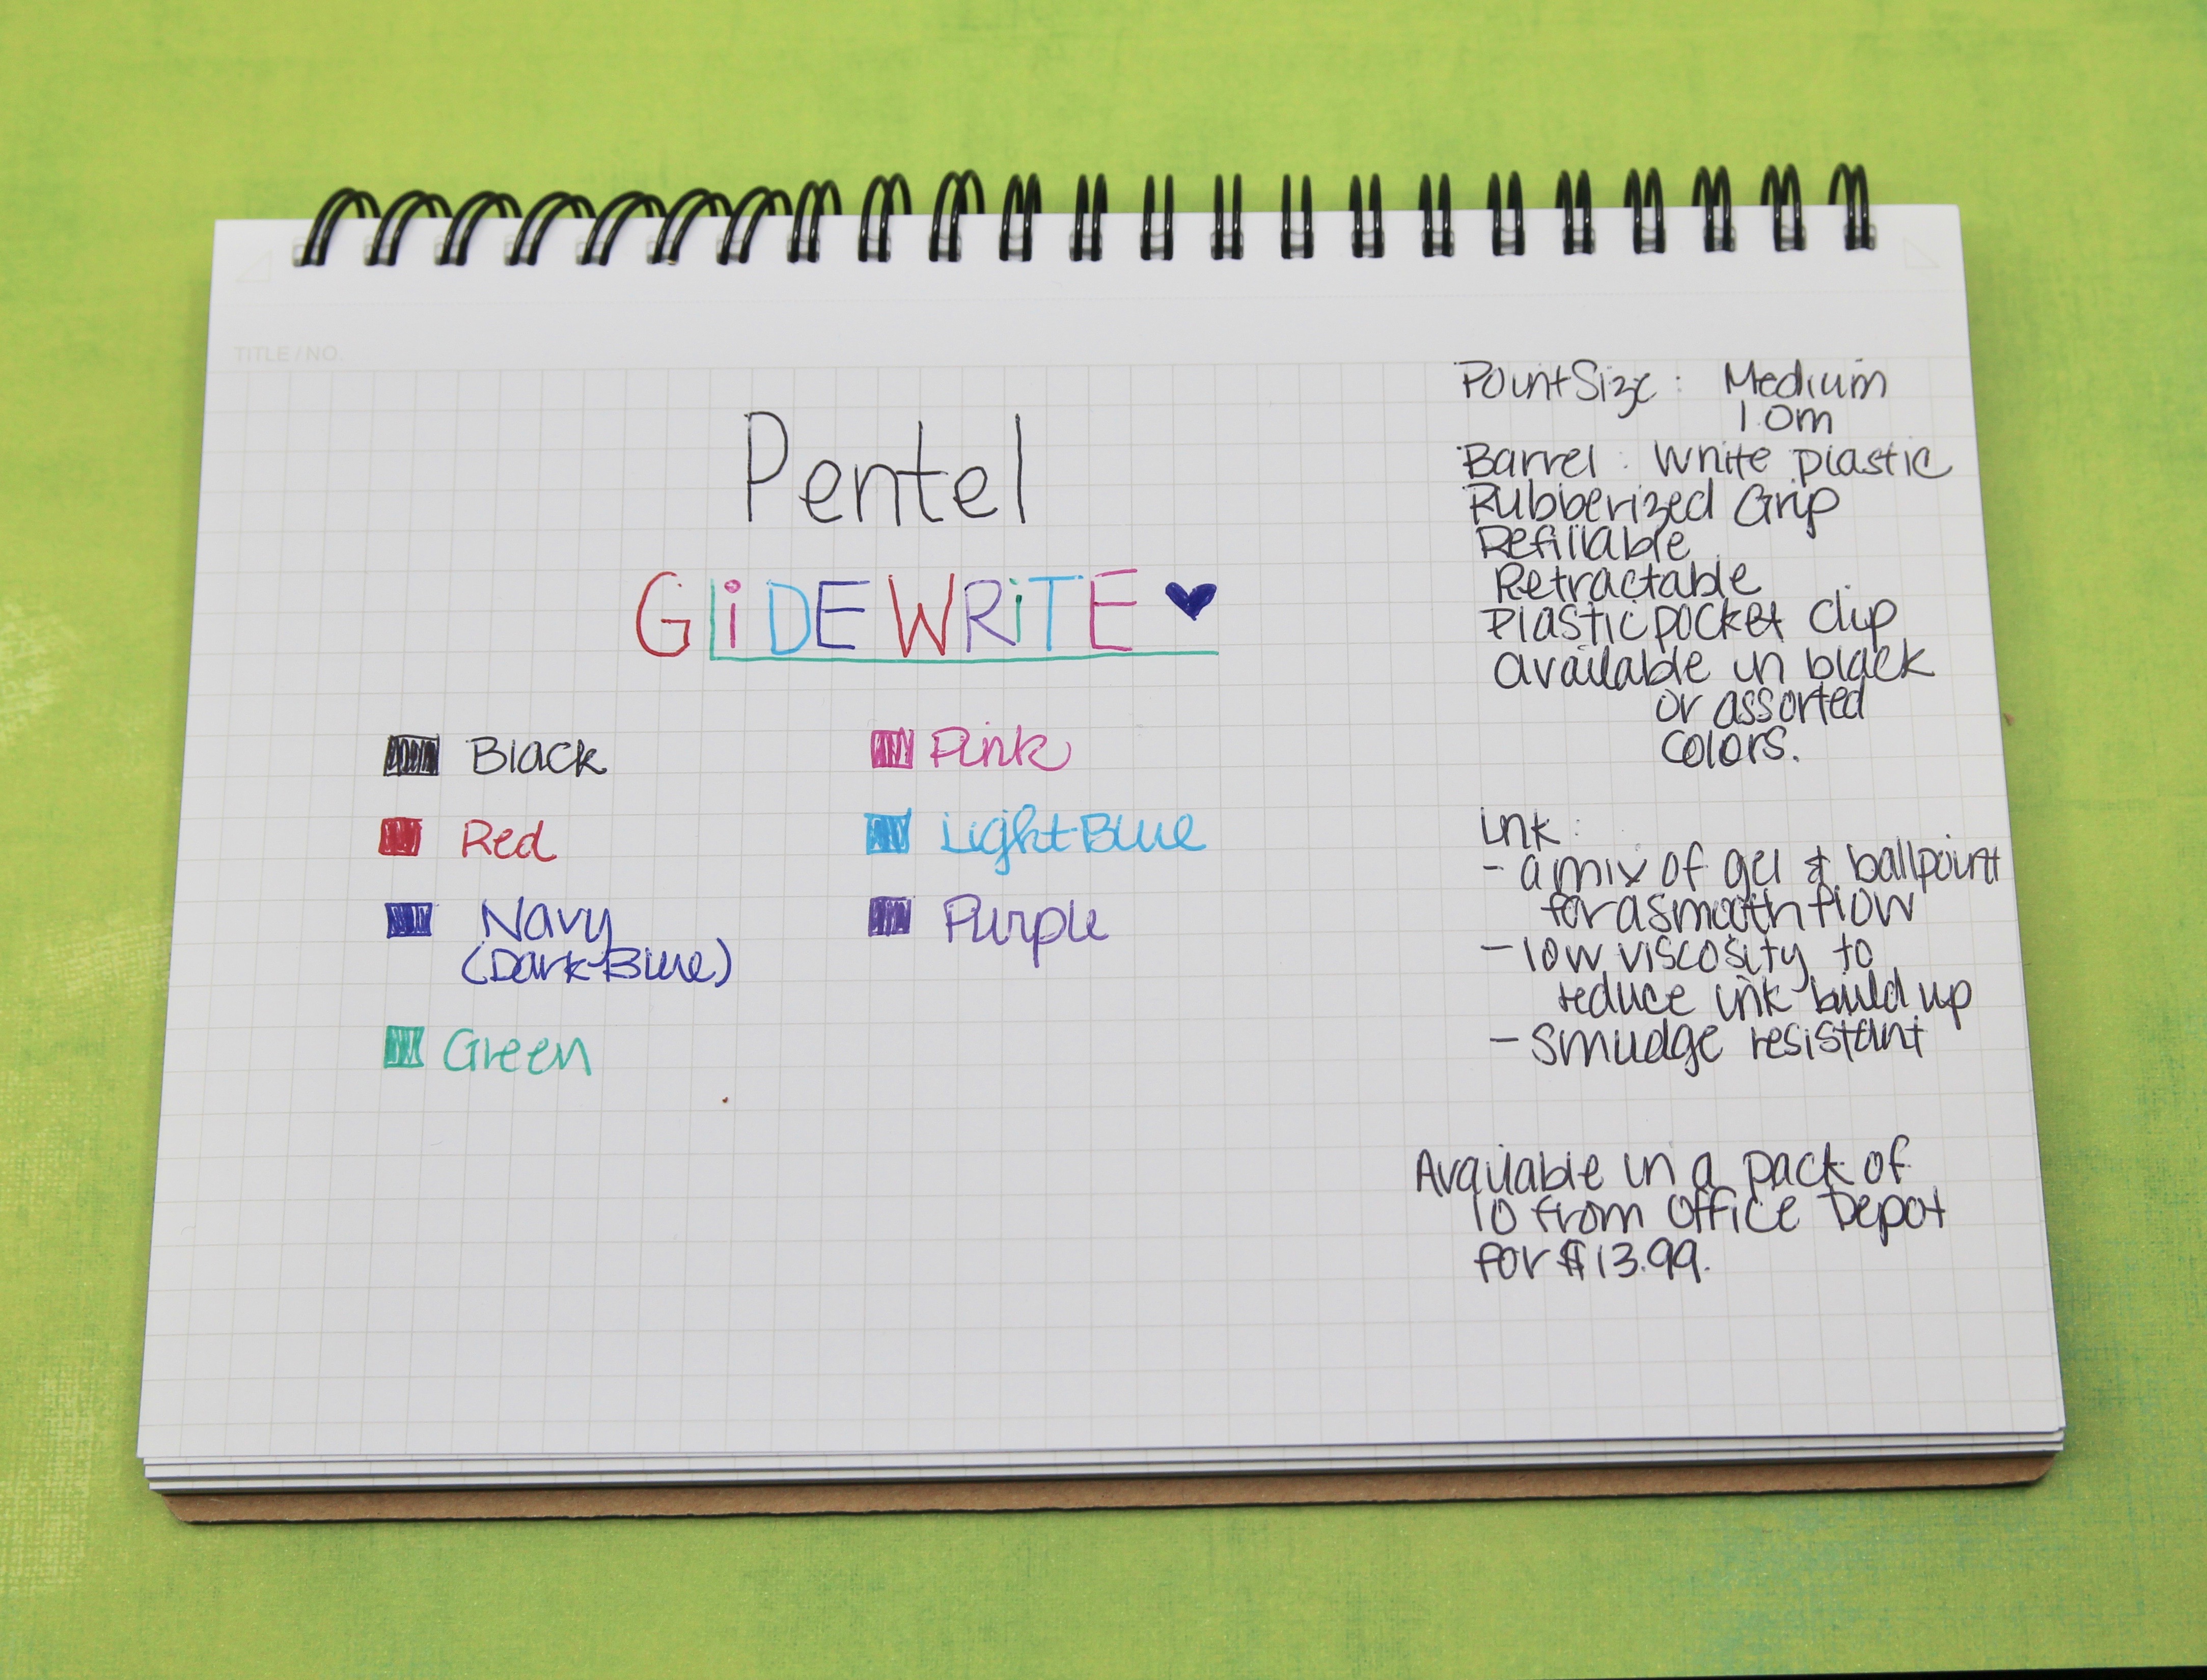 TITLE / NO.
Pentel
GLiDE WRiTE
Black
Red
Navy
(Dark Blue)
Green
Pink
Light Blue
Purple
Point Size : Medium
1.0m
Barrel : White plastic
Rubberized Grip
Refillable
Retractable
Plastic pocket clip
available in black
or assorted
colors.
ink :
- a mix of gel & ballpoint
for a smooth flow
- low viscosity to
reduce ink build up
- smudge resistant
Available in a pack of
10 from Office Depot
for $13.99.